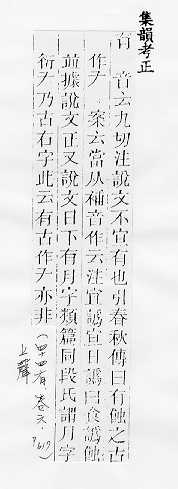 集韻考正
有 音云九切注說文不宜有也引春秋傳曰有蝕之古
作𠂇 案云當从補音作云注宜譌宜日譌曰食譌蝕
並據說文正又說文日下有月字類篇同段氏謂月字
衍𠂇乃古右字此云有古作𠂇亦非（四有 卷六
上聲